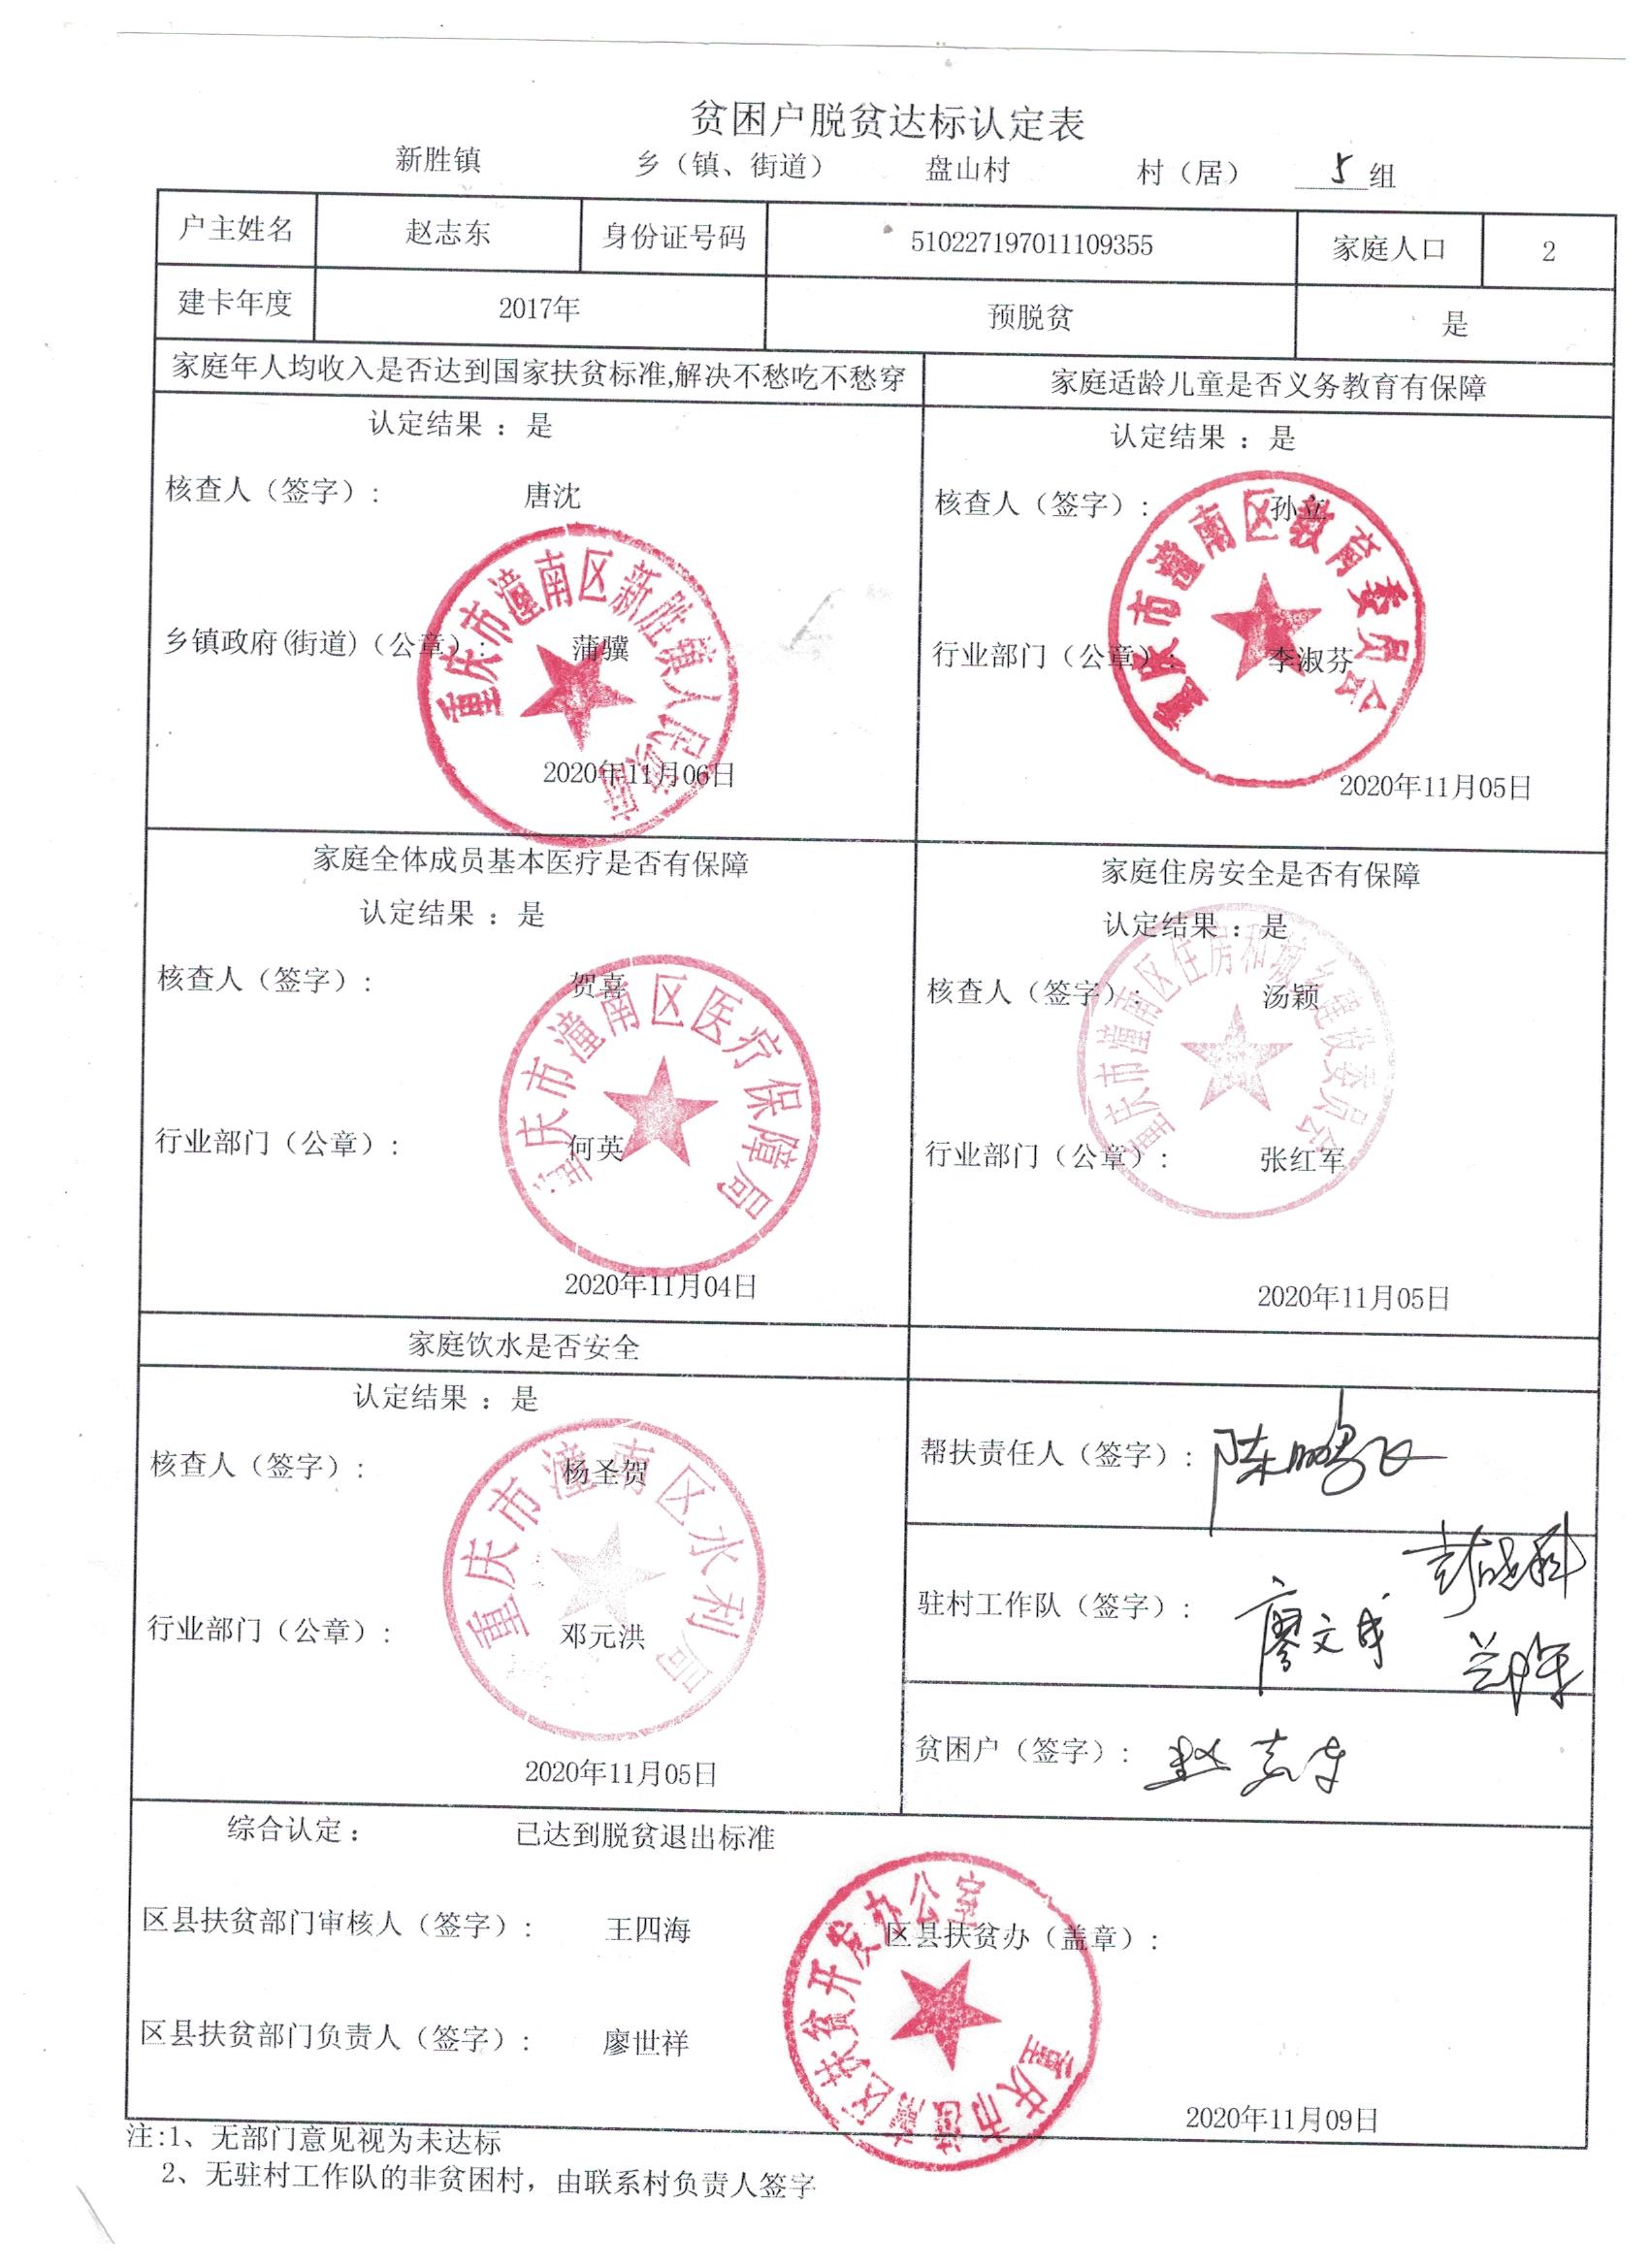 贫困户脱贫达标认定表
新胜镇 乡（镇、街道） 盘山村 村（居） 5组
户主姓名 赵志东 身份证号码 510227197011109355 家庭人口 2
建卡年度 2017年 预脱贫 是
家庭年人均收入是否达到国家扶贫标准,解决不愁吃不愁穿
认定结果 ：是
核查人（签字）: 唐沈
乡镇政府(街道)（公章）: 蒲骥
重庆市潼南区新胜镇人民政府
2020年11月06日
家庭适龄儿童是否义务教育有保障
认定结果 ：是
核查人（签字）: 孙立
行业部门（公章）: 李淑芬
重庆市潼南区教育委员会
2020年11月05日
家庭全体成员基本医疗是否有保障
认定结果 ：是
核查人（签字）: 贺喜
行业部门（公章）: 何英
重庆市潼南区医疗保障局
2020年11月04日
家庭住房安全是否有保障
认定结果 ：是
核查人（签字）: 汤颖
行业部门（公章）: 张红军
重庆市潼南区住房和城乡建设委员会
2020年11月05日
家庭饮水是否安全
认定结果 ：是
核查人（签字）: 杨圣贺
行业部门（公章）: 邓元洪
重庆市潼南区水利局
2020年11月05日
帮扶责任人（签字）: 陈鹏飞
驻村工作队（签字）: 廖文成
贫困户（签字）: 赵志东
综合认定： 已达到脱贫退出标准
区县扶贫部门审核人（签字）: 王四海 区县扶贫办（盖章）:
区县扶贫部门负责人（签字）: 廖世祥
重庆市潼南区扶贫开发办公室
2020年11月09日
注:1、无部门意见视为未达标
2、无驻村工作队的非贫困村，由联系村负责人签字